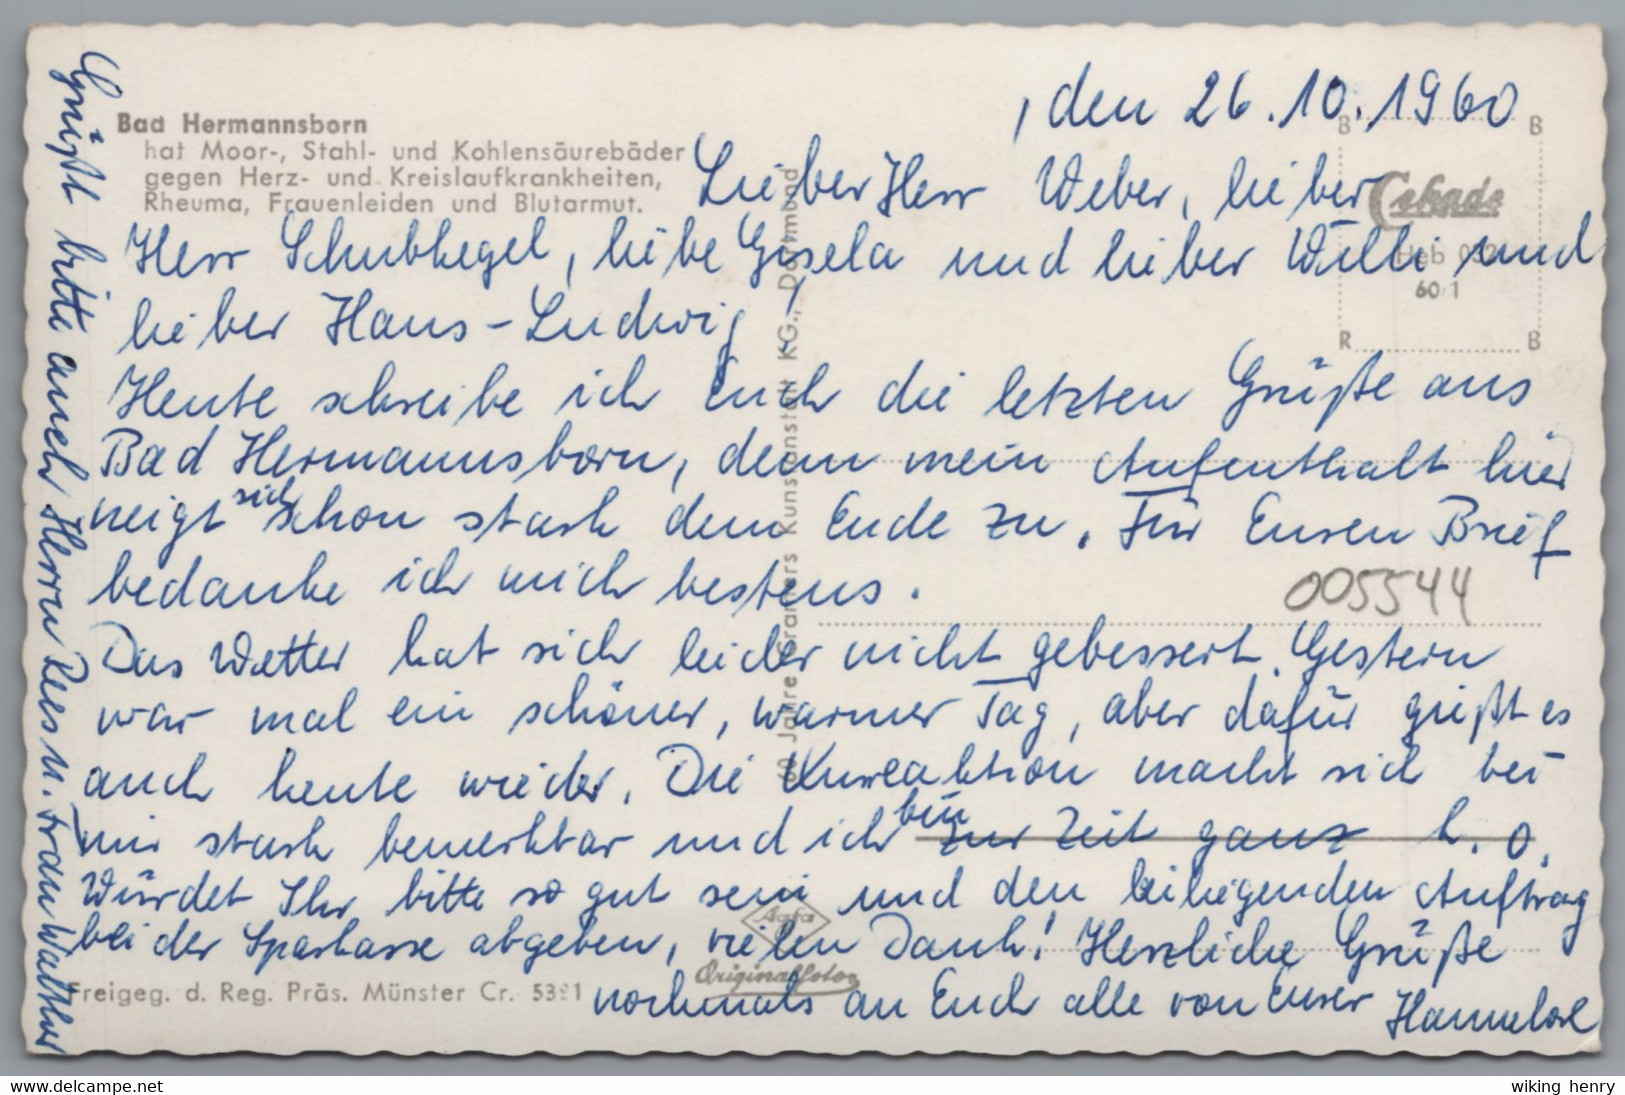 , den 26.10.1960
Bad Hermannsborn
hat Moor-, Stahl- und Kohlensäurebäder
gegen Herz- und Kreislaufkrankheiten,
Rheuma, Frauenleiden und Blutarmut.
B B
R B
Cekade
Heb 032
60/1
Lieber Herr Weber, lieber
Herr Schubkegel, liebe Gisela und lieber Willi und
lieber Hans-Ludwig!
Heute schreibe ich Euch die letzten Grüße aus
Bad Hermannsborn, denn mein Aufenthalt hier
neigt sich schon stark dem Ende zu. Für Euren Brief
bedanke ich mich bestens.
005544
Das Wetter hat sich leider nicht gebessert. Gestern
war mal ein schöner, warmer Tag, aber dafür gießt es
auch heute wieder. Die Kurreaktion macht sich bei
mir stark bemerkbar und ich bin zur Zeit ganz k.o.
Würdet Ihr bitte so gut sein und den beiliegenden Auftrag
bei der Sparkasse abgeben, vielen Dank! Herzliche Grüße
nochmals an Euch alle von Eurer Hannelore
Grüßt bitte auch Herrn Rees u. Frau Walther
60 Jahre Cramers Kunstanstalt KG., Dortmund
Agfa
Originalfoto
Freigeg. d. Reg. Präs. Münster Cr. 5391
www.delcampe.net
wiking henry